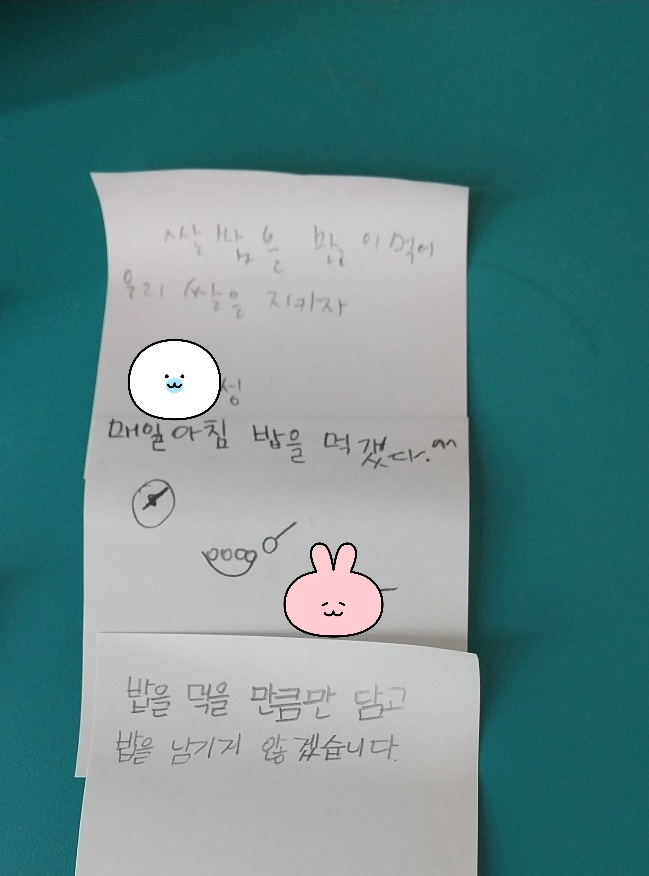 쌀밥을 많이먹어
우리 쌀을 지키자
성
매일아침 밥을 먹겠다.^^
밥을 먹을 만큼만 담고
밥을 남기지 않겠습니다.